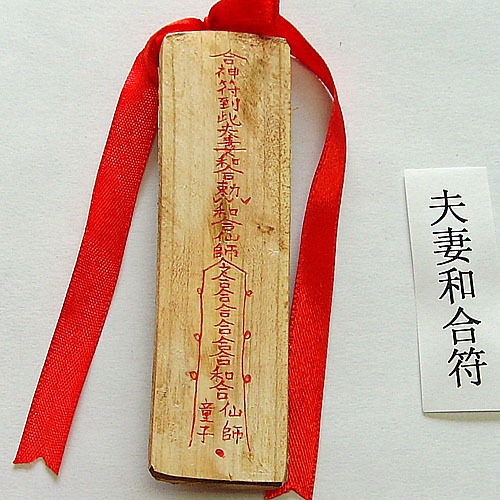 合神符到此夫妻和合敕
和合仙師
合合合合合合和合
仙師
童子
夫妻和合符